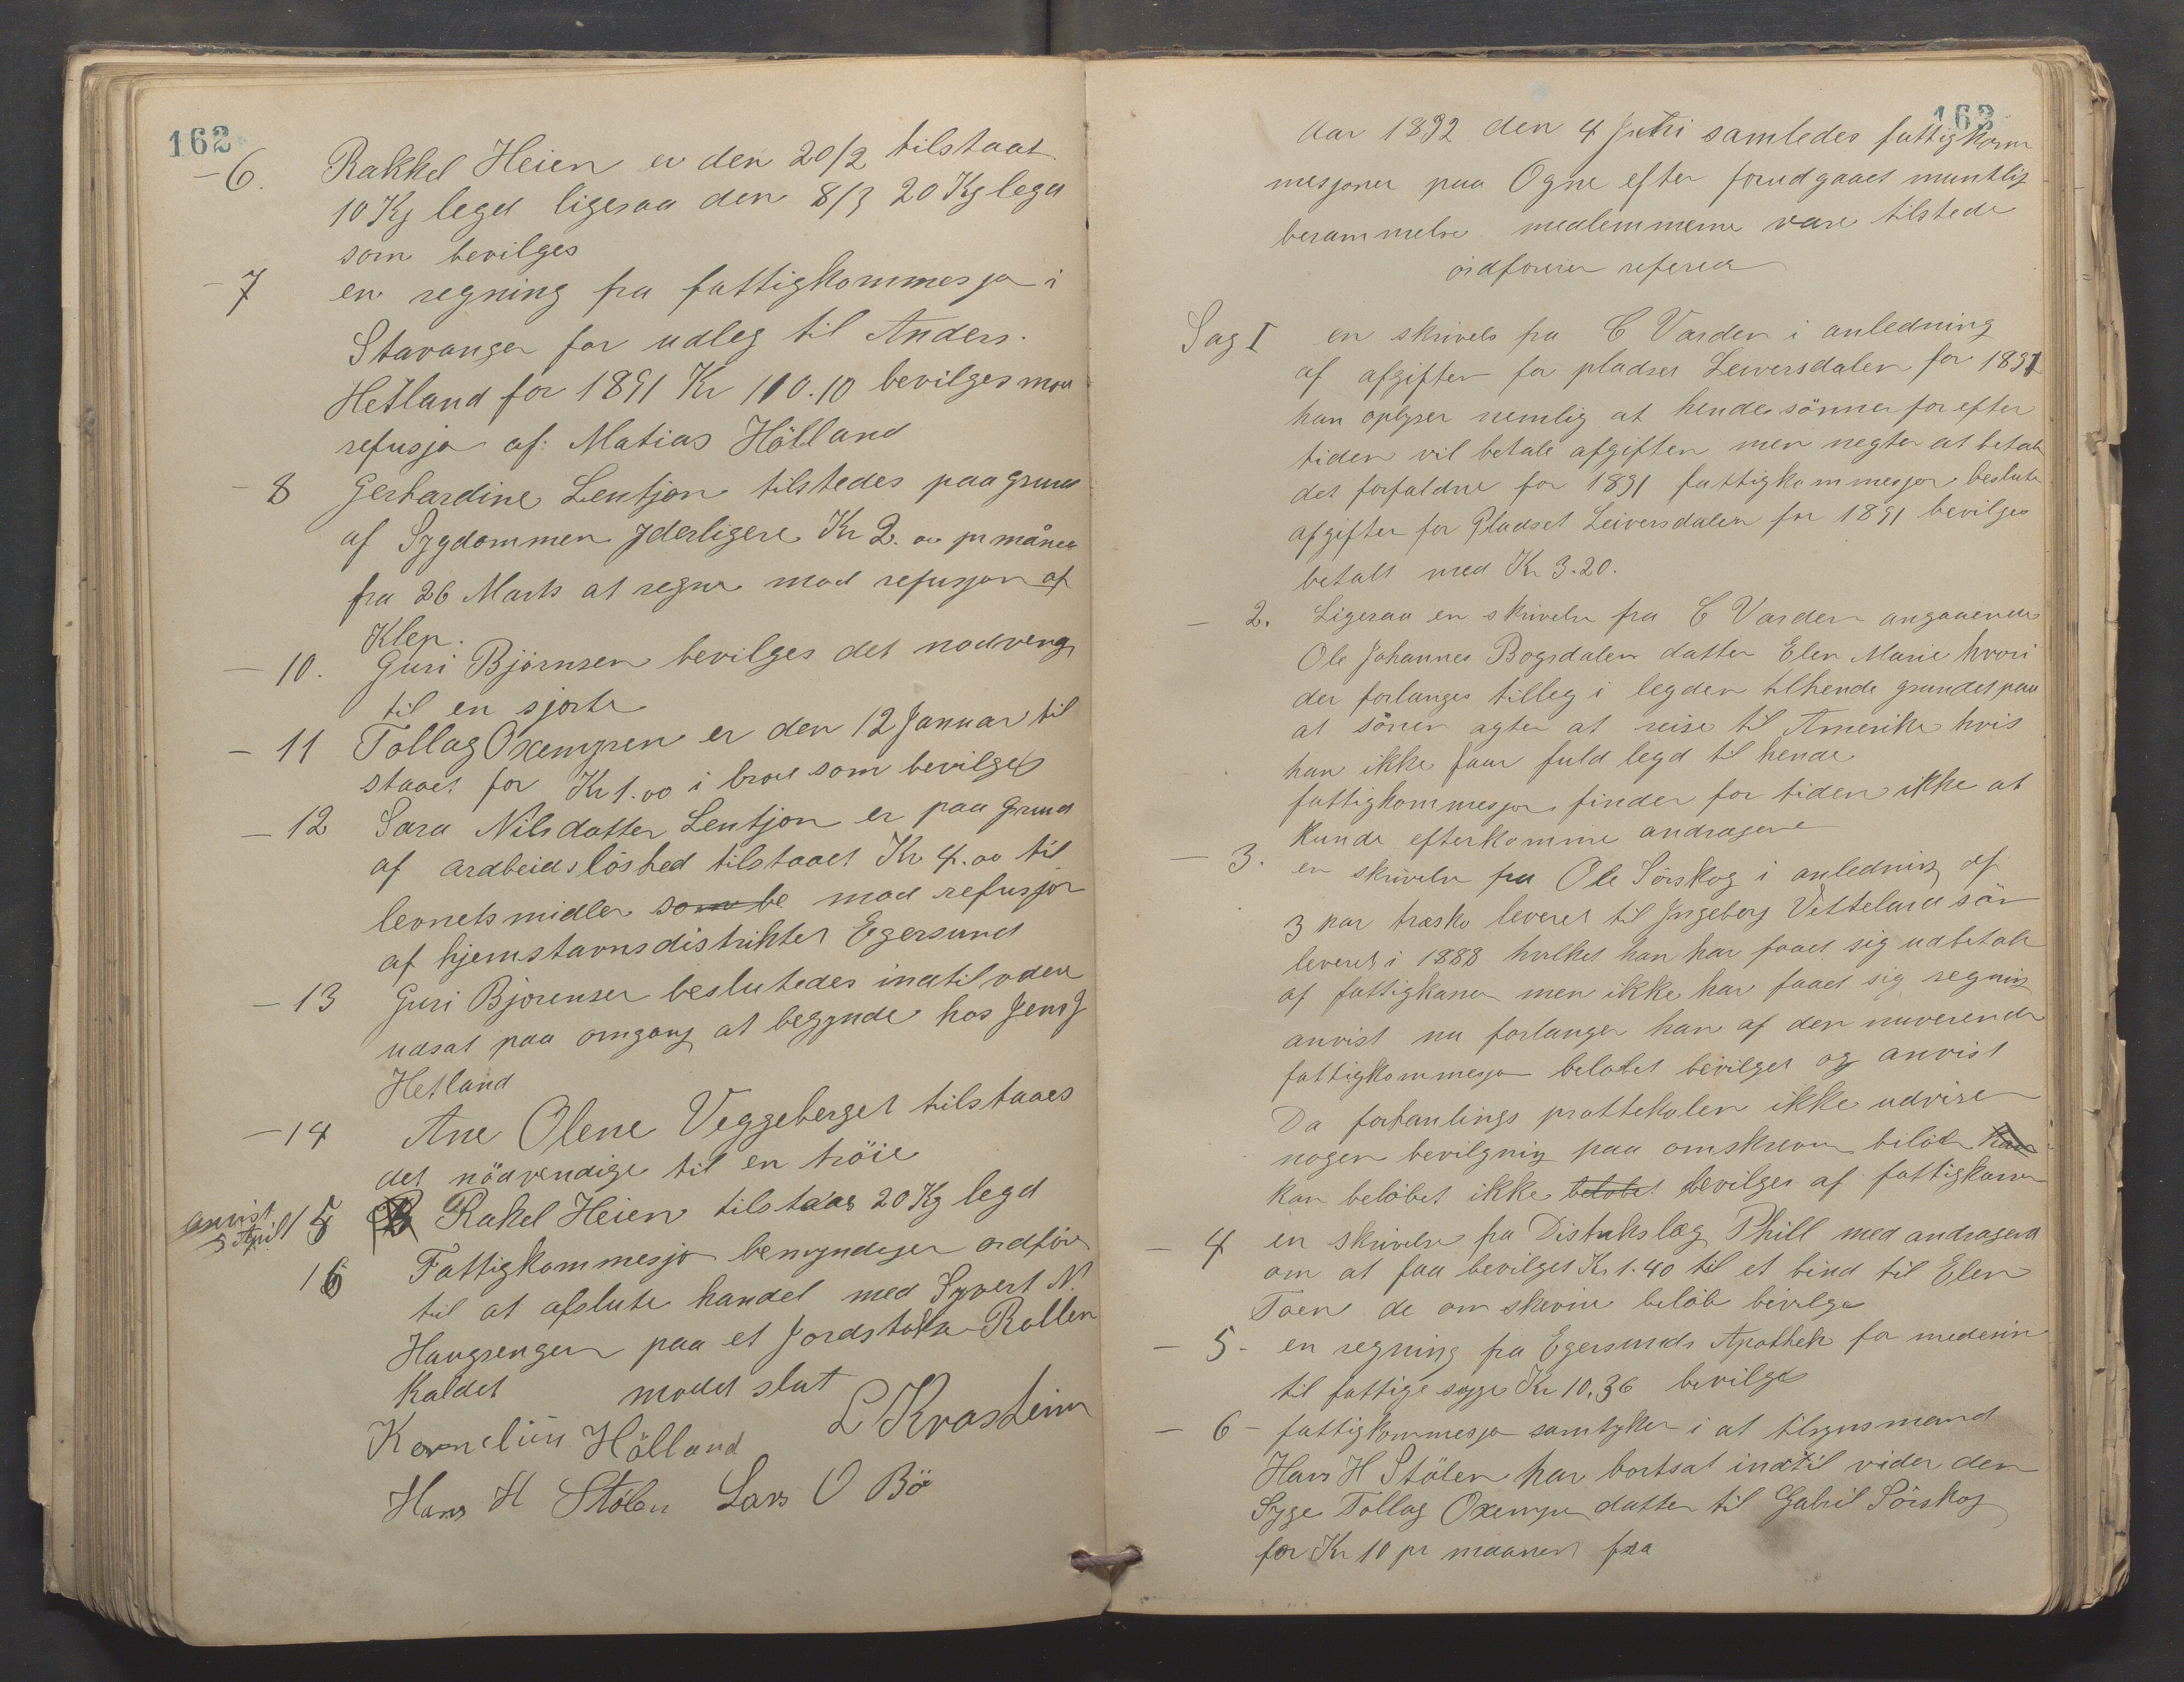 162
- 6. Rakkel Heien er den 20/2 tilstaat
10 Kg legd ligesaa den 8/3 20 Kg legd
som bevilges
- 7 en regning fra fattigkommesjo i
Stavanger for udleg til Anders
Hetland for 1891 Kr 110.10 bevilges mod
refusjo af: Matias Hölland
- 8 Gerhardine Lentjon tilstedes paa grund
af Sygdommen yderligere Kr 2.00 pr måned
fra 26 Marts at regne mod refusjon af
Klep.
- 10. Guri Björnsen bevilges det nodveng
til en sjorte
- 11 Tollag Oxemyren er den 12 Januar til
staaet for Kr 1.00 i brod som bevilges
- 12 Sara Nilsdatter Lentjon er paa grund
af ardbeidslöshed tilstaaet Kr 4.00 til
levnetsmidler som be mod refusjon
af hjemstavnsdistriktet Egersund
- 13 Guri Bjorensen beslutedes indtil viden
udsat paa omgang at begynde hos Jens J
Hetland
- 14 Ane Olene Veggeberget tilstaaes
det nödvendige til en tröie
anvist
5 April
15 Rakel Heien tilstaaes 20 Kg legd
16 Fattigkommesjo bemyndiger ordför
til at afslute handel med Syvert N.
Haugrengen paa et Jordstokke Rollen
kaldet modet slut
Kornelius Hölland L Kvasheim
Hans H Stölen Lars O Bö
163
Aar 1892 den 4 Juni samledes fattigkom
mesjonen paa Ogne efter forudgaaet muntlig
berammelse medlemmerne vare tilstede
ordforer refered
Sag I en skrivels fra C Varden i anledning
af afgiften for pladset Leiversdalen for 1891
han oplyser nemlig at hendes sönner for efter
tiden vil betale afgiften men negter at betale
det forfaldne for 1891 fattigkommesjon beslute
afgiften for Pladset Leiversdalen for 1891 bevilges
betalt med Kr 3.20.
- 2. Ligesaa en skrivelse fra C Varden angaaende
Ole Johannes Bogsdalen datter Elen Marie hvori
der forlanges tilleg i legden til hende grundet paa
at sönen agter at reise til Amerika hvis
han ikke faar fuld legd til hende
fattigkommesjon finder for tiden ikke at
kunde efterkomme andragene
- 3. en skrivelse fra Ole Sörskog i anledning af
3 par træsko leveret til Ingeborg Vetteland sön
leveret i 1888 hvilket han har faaet sig udbetalt
af fattigkasen men ikke har faaet sig regning
anvist nu forlanger han af den nuverende
fattigkommesjo belobet bevilget og anvist
Da forhanlings prottekolen ikke udviser
nogen bevilgning paa omskrevn belöb kan
kan belöbet ikke belobet bevilges af fattigkasen
- 4 en skrivelse fra Distrikslæg Phill med andragend
om at faa bevilget Kr 1.40 til et bind til Elen
Toen de omskevne belöb bevilges
- 5 - en regning fra Egersunds Apothek for medesin
til fattige syge Kr 10.36 bevilges
- 6 - fattigkommesjo samtyker i at tilsynsmand
Hans H Stölen har bortsat indtil vider den
Syge Tollag Oxemyr datter til Gabril Sörskog
for Kr 10 pr maaned fra